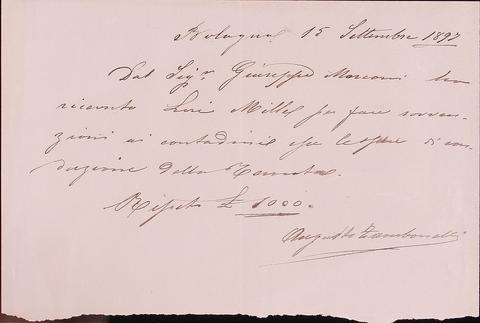 Bologna 15 Settembre 1897
Dal Sigr. Giuseppe Marconi ho
ricevuto Lire Mille per fare sovven-
zioni ai contadini e per le spese di con-
duzione della Tenuta.
Ripeto £ 1000.
Augusto Zambonelli